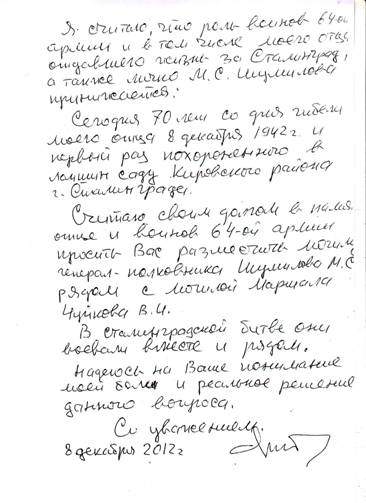 Я считаю, что роль воинов 64-ой
армии и в том числе моего отца
отдавшего жизнь за Сталинград,
а также лично М.С. Шумилова
принижается.
Сегодня 70 лет со дня гибели
моего отца 8 декабря 1942 г. и
первый раз похороненного в
саду Кировского района
г. Сталинграда.
Считаю своим долгом в память
отца и воинов 64-ой армии
просить Вас разместить могилу
генерал-полковника Шумилова М.С
рядом с могилой Маршала
Чуйкова В.И.
В сталинградской битве они
воевали вместе и рядом.
Надеюсь на Ваше понимание
моей боли и реальное решение
данного вопроса.
С уважением.
8 декабря 2012 г